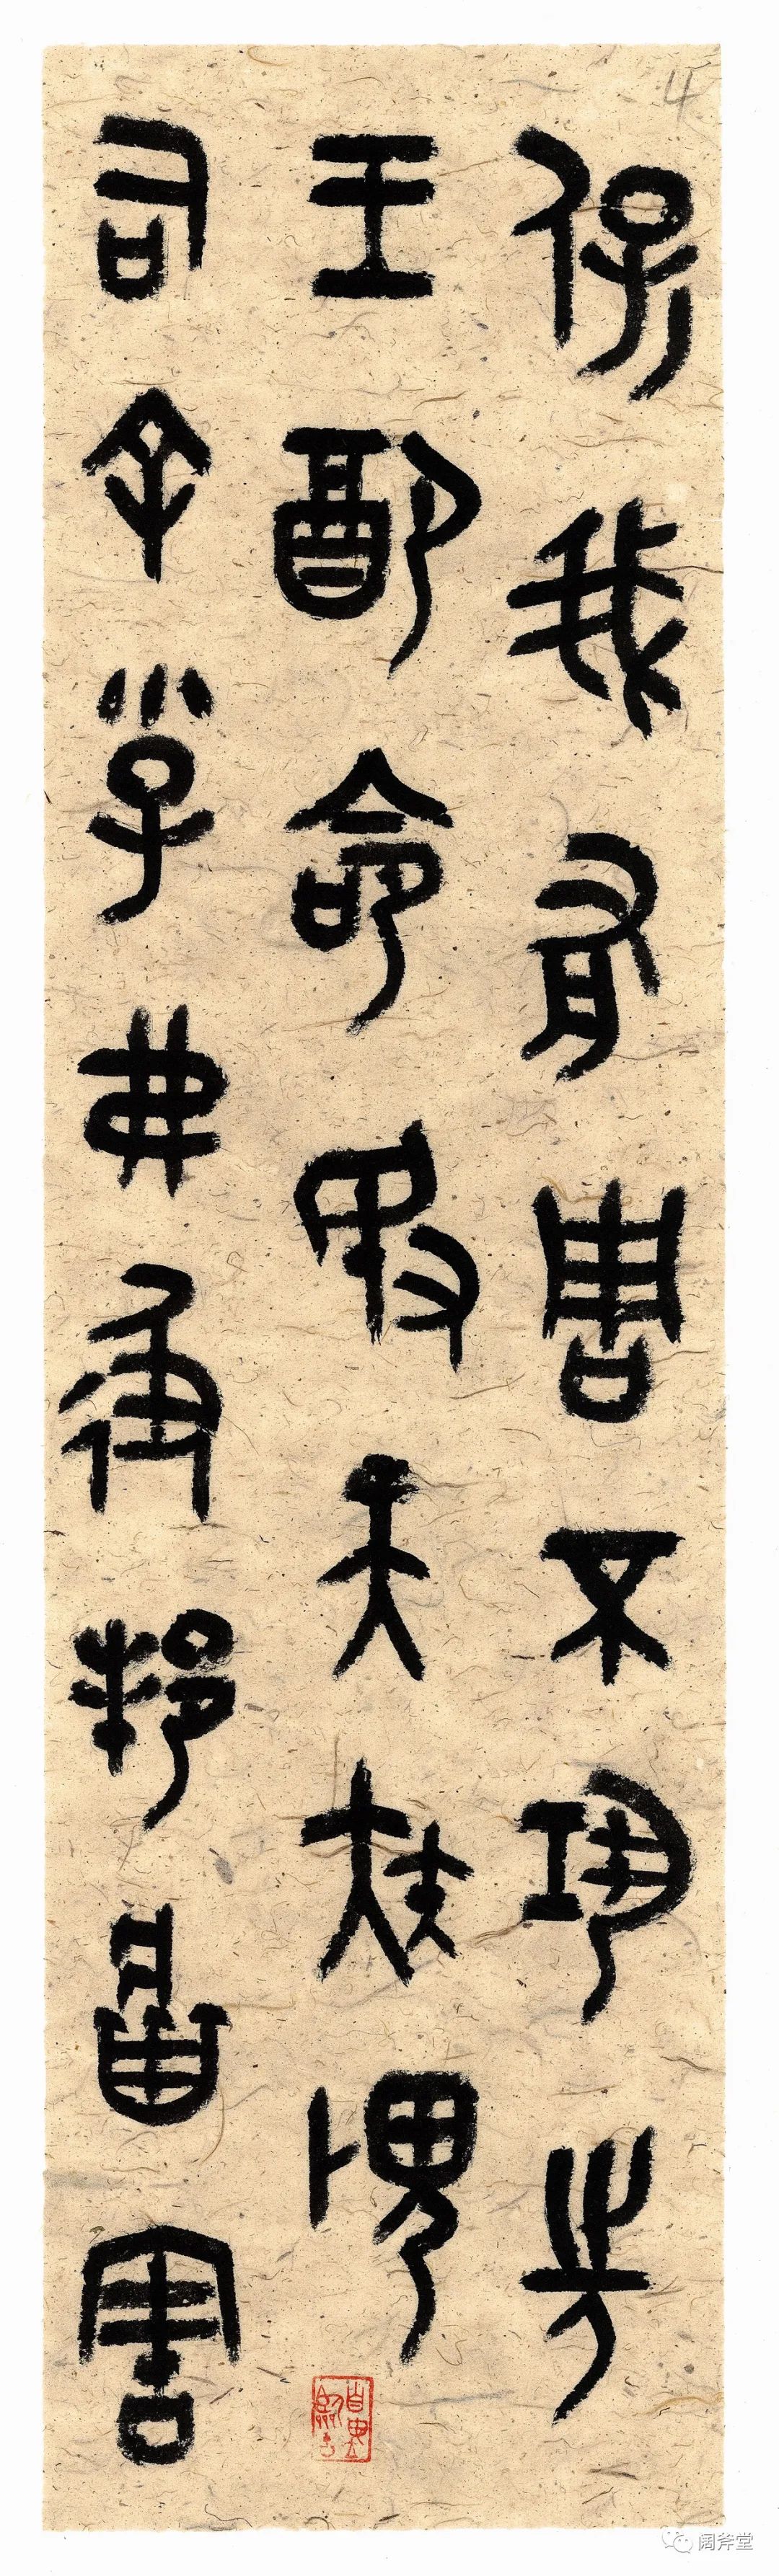 4
保我有周不巩先
王配命敃天疾畏
司余小子弗彶邦將害
阔斧堂